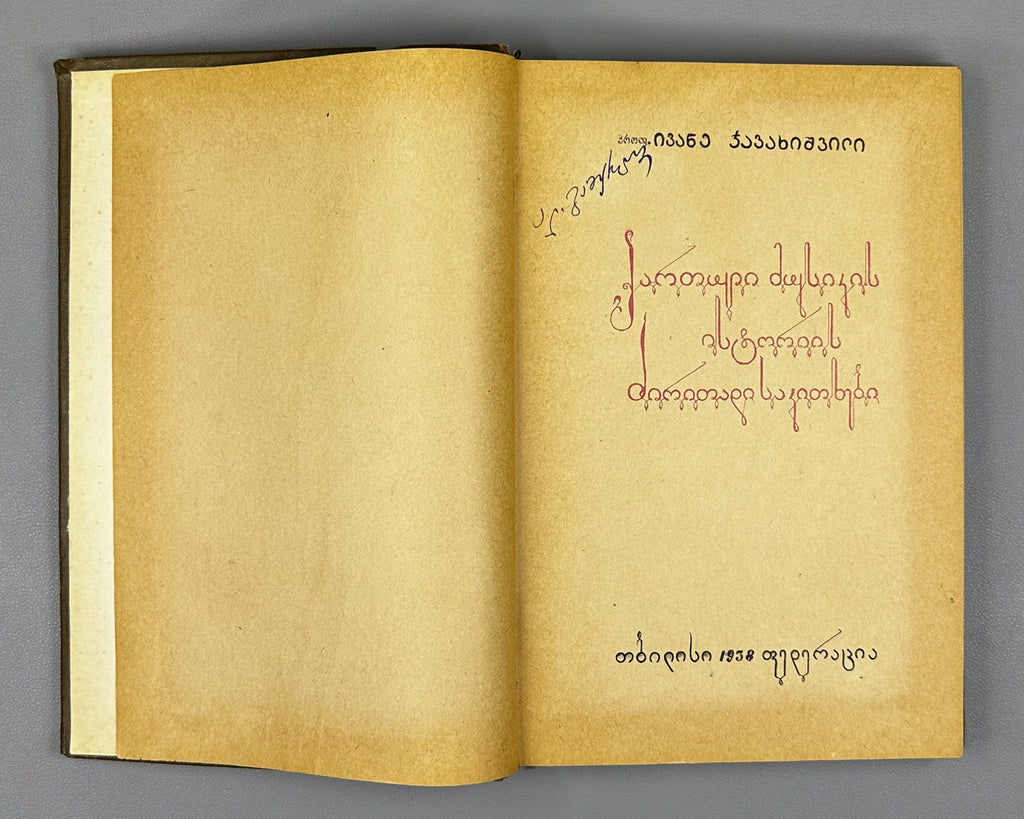 პროფ. ივანე ჯავახიშვილი
ქართული მუსიკის
ისტორიის
ძირითადი საკითხები
თბილისი 1938 ფედერაცია